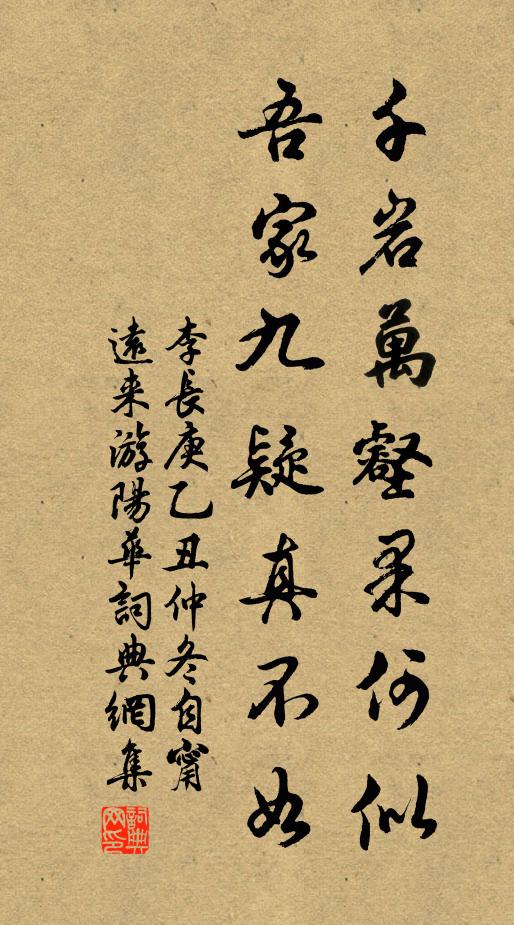 千岩萬壑果何似
吾家九疑真不如
李長庚乙丑仲冬自甯
遠来游陽華詞典網集
詞典
网印